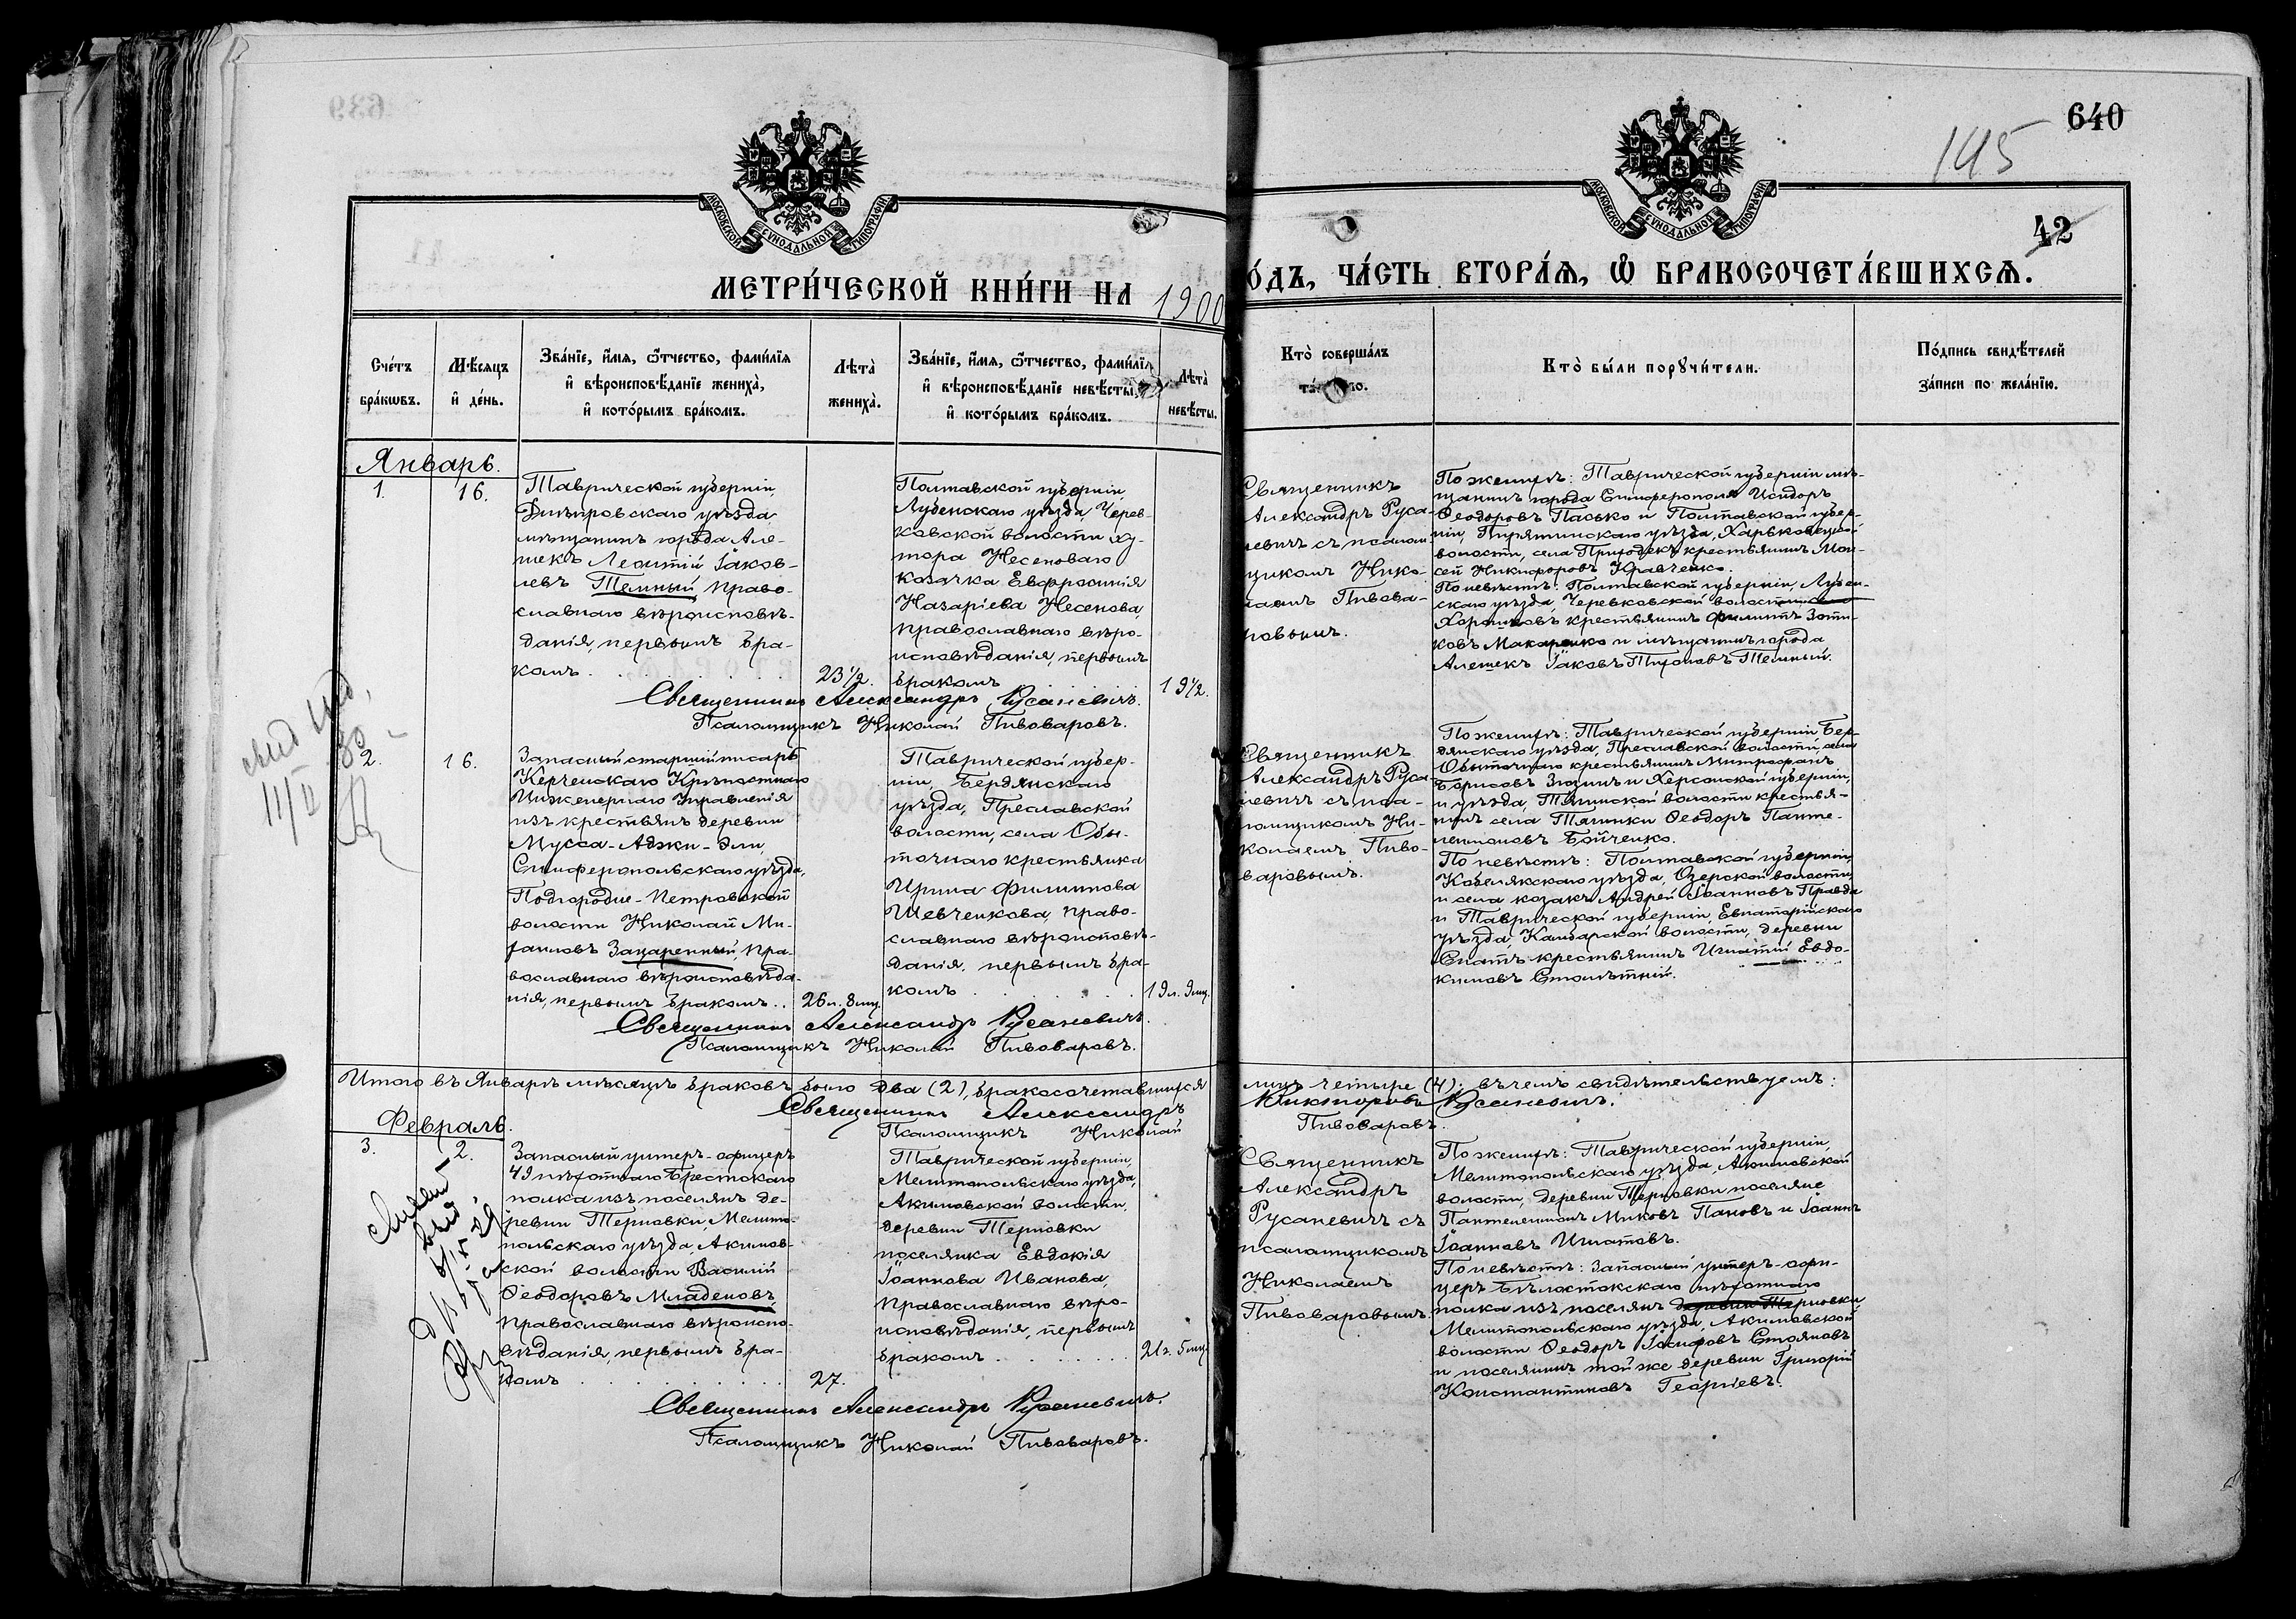 640
145
42
МОСКОВСКОЙ СУНОДАЛЬНОЙ ТИПОГРАФІИ
МОСКОВСКОЙ СУНОДАЛЬНОЙ ТИПОГРАФІИ
МЕТРИ́ЧЕСКОЙ КНИ́ГИ НА 1900
О́ДЪ, ЧА́СТЬ ВТОРА́Я, Ѿ БРАКОСОЧЕТА́ВШИХСЯ.
Сче́тъ
бра́кωвъ.
Мѣ́сяцъ
и҆ де́нь.
Зва́нїе, и҆́мя, ѻ҆́тчество, фами́лїя
и҆ вѣроисповѣ́данїе жениха̀,
и҆ кото́рымъ бра́комъ.
Лѣта̀
жениха̀.
Зва́нїе, и҆́мя, ѻ҆́тчество, фами́лїя
и҆ вѣроисповѣ́данїе невѣ́сты,
и҆ кото́рымъ бра́комъ.
Лѣта̀
невѣ́сты.
Кто̀ соверша́лъ
Кто̀ бы́ли порꙋчи́тели.
По́дпись свидѣ́телей
за́писи по жела́нїю.
Январь.
1.
16.
Таврической губерніи,
Днѣпровскаго уѣзда
мѣщанинъ города Але-
шекъ Леонтій Іаков-
левъ Темный, право-
славнаго вѣроисповѣ-
данія, первымъ бра-
комъ
23½.
Полтавской губерніи,
Лубенскаго уѣзда, Черев-
ковской волости ху-
тора Несеноваго
козачка Евфросинія
Назаріева Несенова,
православнаго вѣро-
исповѣданія, первымъ
бракомъ
19½.
Священникъ
Александръ Руса-
невичъ съ псалом-
щикомъ Нико-
лаемъ Пивова-
ровымъ.
По женихѣ: Таврической губерніи мѣ-
щанинъ города Симферополя Исидоръ
Ѳеодоровъ Пасько и Полтавской губер-
ніи, Пирятинскаго уѣзда, Харьковецкой
волости, села Приходекъ крестьянинъ Мои-
сей Никифоровъ Кравченко.
По невѣстѣ: Полтавской губерніи, Лубен-
скаго уѣзда, Черевковской волости
Хорошковъ крестьянинъ Филиппъ Зоти-
ковъ Макаренко и мѣщанинъ города
Алешекъ Іаковъ Тихоновъ Темный.
Священникъ Александръ Русаневичъ.
Псаломщикъ Николай Пивоваровъ.
2.
16.
Запасный старшій писарь
Керченскаго Крѣпостнаго
Инженернаго Управленія
изъ крестьянъ деревни
Мусса-Аджи-Эли,
Симферопольскаго уѣзда,
Подгородне-Петровской
волости Николай Ми-
хаиловъ Зацаренный, пра-
вославнаго вѣроисповѣда-
нія, первымъ бракомъ . .
26 л. 8 мц.
Таврической губер-
ніи, Бердянскаго
уѣзда, Преславской
волости, села Обы-
точнаго крестьянка
Ирина Филиппова
Шевченкова, право-
славнаго вѣроисповѣ-
данія, первымъ бра-
комъ
19 л. 9 мц.
Священникъ
Александръ Руса-
невичъ съ пса-
ломщикомъ Ни-
колаемъ Пиво-
варовымъ.
По женихѣ: Таврической губерніи Бер-
дянскаго уѣзда, Преславской волости, села
Обыточнаго крестьянинъ Митрофанъ
Борисовъ Зюзинъ и Херсонской губерніи,
и уѣзда, Тягинской волости крестья-
нинъ села Тягинки Ѳеодоръ Панте-
леимоновъ Бойченко.
По невѣстѣ: Полтавской губерніи,
Кобелякскаго уѣзда, Озерской волости,
и села козакъ Андрей Іоанновъ Правда
и Таврической губерніи, Евпаторійскаго
уѣзда, Камбарской волости, деревни
Спатъ крестьянинъ Игнатій Евдо-
кимовъ Столѣтній.
Священникъ Александръ Русаневичъ.
Псаломщикъ Николай Пивоваровъ.
Итого въ Январѣ мѣсяцѣ браковъ было два (2), бракосочетавшихся лицъ четыре (4); въ чемъ свидѣтельствуемъ:
Священникъ Александръ Викторовъ Русаневичъ.
Псаломщикъ Николай Пивоваровъ.
Февраль.
3.
2.
Запасный унтеръ-офицеръ
49 пѣхотнаго Брестскаго
полка изъ поселянъ де-
ревни Терновки, Мелито-
польскаго уѣзда, Акимов-
ской волости Василій
Ѳеодоровъ Младеновъ,
православнаго вѣроиспо-
вѣданія, первымъ бра-
комъ
27.
Таврической губерніи,
Мелитопольскаго уѣзда,
Акимовской волости,
деревни Терновки
поселянка Евдокія
Іоаннова Иванова,
православнаго вѣро-
исповѣданія, первымъ
бракомъ
21 г. 5 мц.
Священникъ
Александръ
Русаневичъ съ
псаломщикомъ
Николаемъ
Пивоваровымъ.
По женихѣ: Таврической губерніи,
Мелитопольскаго уѣзда, Акимовской
волости, деревни Терновки поселяне
Пантелеимонъ Миковъ Пановъ и Іоаннъ
Іоанновъ Игнатовъ.
По невѣстѣ: Запасный унтеръ-офи-
церъ Бѣлостокскаго пѣхотнаго
полка изъ поселянъ деревни Терновки
Мелитопольскаго уѣзда, Акимовской
волости Ѳеодоръ Іосифовъ Стояновъ
и поселянинъ той же деревни Григорій
Константиновъ Георгіевъ.
Священникъ Александръ Русаневичъ.
Псаломщикъ Николай Пивоваровъ.